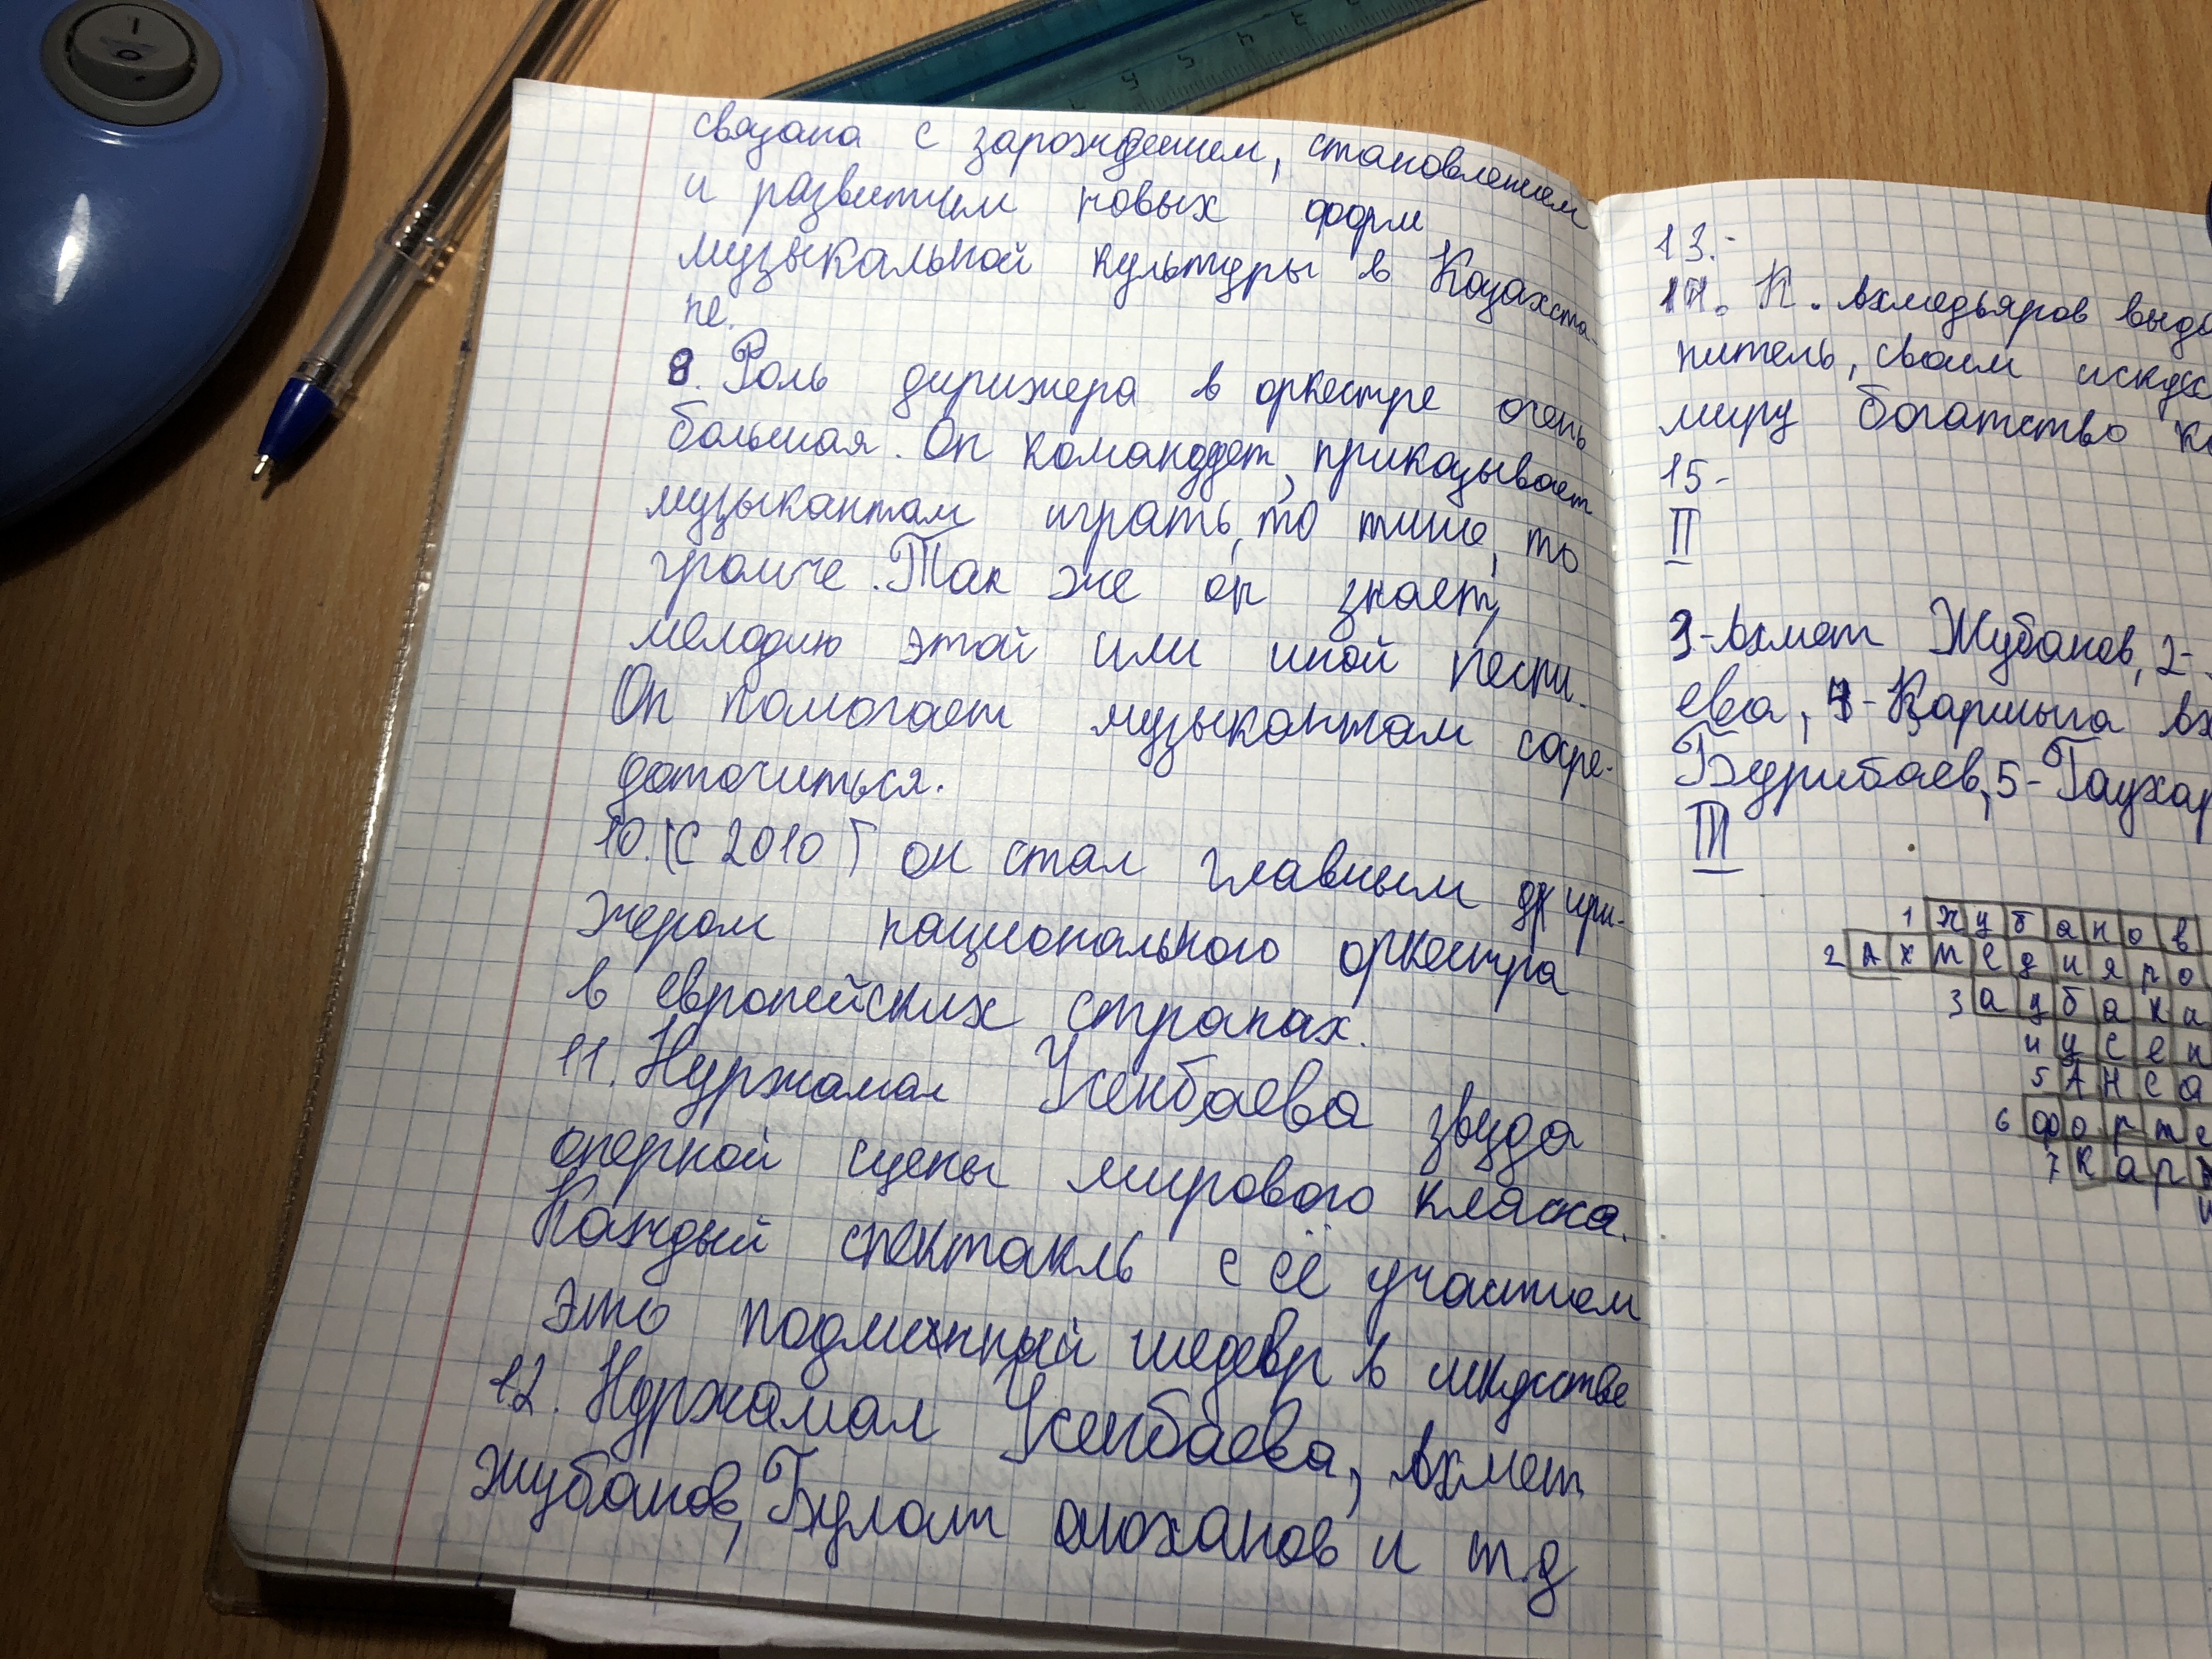 связана с зарождением, становлением
и развитием новых форм
музыкальной культуры в Казахста-
не.
8. Роль дирижера в оркестре очень
большая. Он командует, приказывает
музыкантам играть, то тише, то
громче. Так же он знает,
мелодию этой или иной песни.
Он помогает музыкантам соре-
доточиться.
10. (С 2010 г он стал главным дири-
жером национального оркестра
в европейских странах.
11. Нуржамал Усенбаева звуда
оперной сцены мирового класса.
Каждый спектакль с её участием
это подлинный шедевр в искусстве
12. Нуржамал Усенбаева, Ахмет
Жубанов, Булат аюханов и т.д
13.-
14. К. Ахмедьяров выда
нитель, своим искус
миру богатство ка
15-
II
1-Ахмет Жубанов, 2-
ева, 4-Каршыга Ах
Бурибаев, 5-Гаухар
III
1 Жубанов
2 Ахмедияро
3 аубаки
4 усен
5 АНСа
6 форте
7 кар